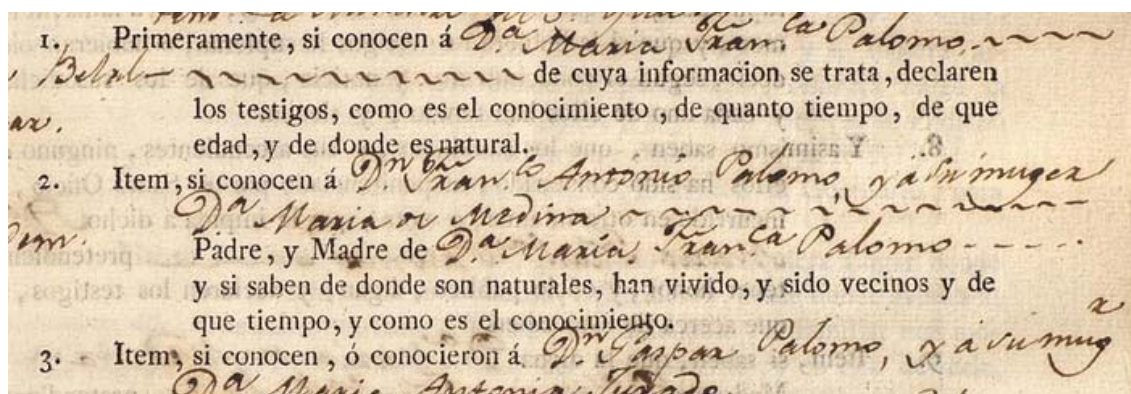 1. Primeramente, si conocen á D.ª Maria Fran.ca Palomo
Belal de cuya informacion se trata, declaren
los testigos, como es el conocimiento, de quanto tiempo, de que
edad, y de donde es natural.
2. Item, si conocen á D.n Fran.co Antonio Palomo, y á su muger
D.ª Maria de Medina
Padre, y Madre de D.ª Maria Fran.ca Palomo
y si saben de donde son naturales, han vivido, y sido vecinos y de
que tiempo, y como es el conocimiento.
3. Item, si conocen, ó conocieron á D.n Gaspar Palomo, y á su mug.r
D.ª Maria Antonia Jurado